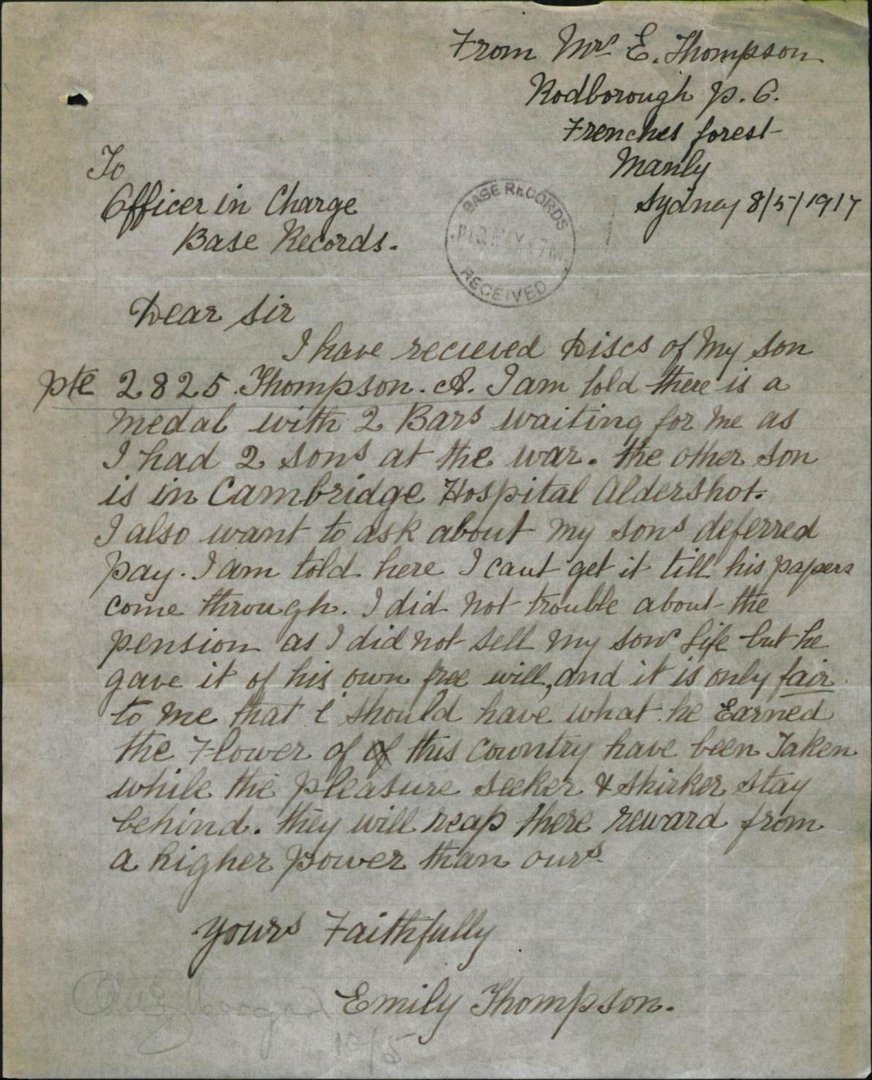 From Mrs E. Thompson
Rodborough P.O.
Frenches forest
Manly
Sydney 8/5/1917
To
Officer in Charge
Base Records.
BASE RECORDS
RECEIVED
Dear Sir
I have recieved Discs of My son
Pte 2825. Thompson. A. I am told there is a
Medal with 2 Bars waiting for Me as
I had 2 sons at the war. the other son
is in Cambridge Hospital Aldershot.
I also want to ask about My sons deferred
pay. I am told here I cant get it till his papers
come through. I did not trouble about the
pension as I did not sell My sons life but he
gave it of his own free will, and it is only fair
to Me that i should have what he Earned
the Flower of of this Country have been Taken
while the Pleasure Seeker & Shirker stay
behind. they will reap there reward from
a higher power than ours
Yours Faithfully
Emily Thompson.
10/5